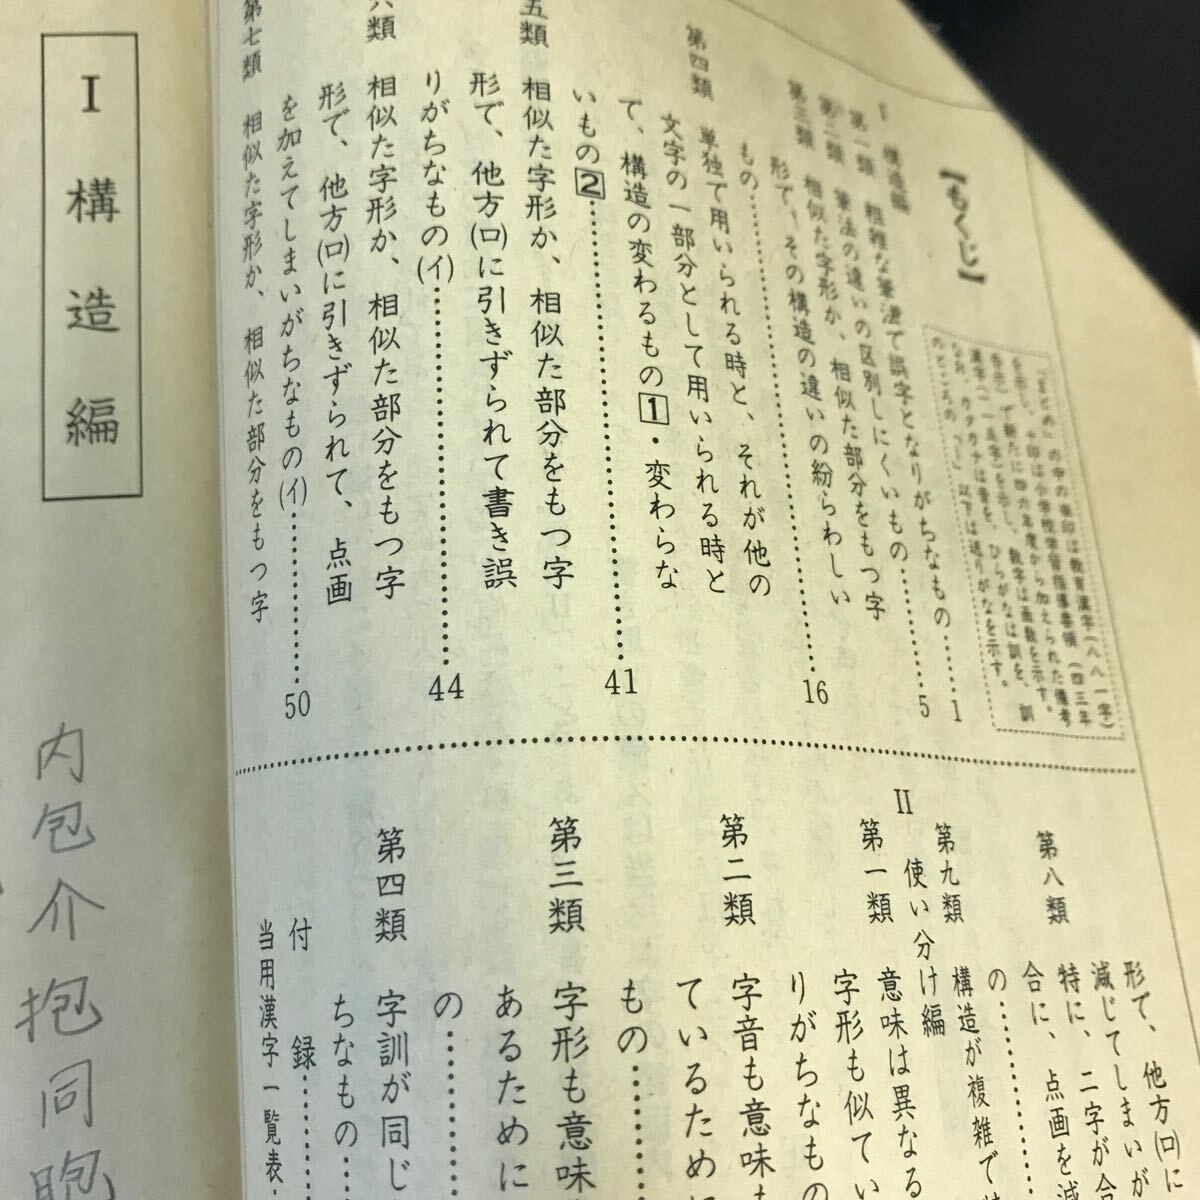 【もくじ】
「まとめ」の中の※印は教育漢字(八八一字)
を示し、＋印は小学校学習指導要領(四三年
告示)で新たに四六年度から加えられた備考
漢字(一一五字)を示し、数字は画数を示す。
なお、カタカナは音を、ひらがなは訓を、訓
のところの「―」以下は送りがなを示す。
I 構造編
第一類 粗雑な筆法で誤字となりがちなもの……1
第二類 筆法の違いの区別しにくいもの……5
第三類 相似た字形か、相似た部分をもつ字
形で、その構造の違いの紛らわしい
もの……16
第四類 単独で用いられる時と、それが他の
文字の一部分として用いられる時と
で、構造の変わるもの1・変わらな
いもの2……41
五類 相似た字形か、相似た部分をもつ字
形で、他方(ロ)に引きずられて書き誤
りがちなもの(イ)……44
六類 相似た字形か、相似た部分をもつ字
形で、他方(ロ)に引きずられて、点画
を加えてしまいがちなもの(イ)……50
第七類 相似た字形か、相似た部分をもつ字
形で、他方(ロ)に
減じてしまいが
第八類 特に、二字が合
合に、点画を減
の……
第九類 構造が複雑で
II 使い分け編
第一類 意味は異なる
字形も似てい
りがちなもの
第二類 字音も意味も
ているために
もの……
第三類 字形も意味
あるために
の……
第四類 字訓が同じ
ちなもの……
付録……
当用漢字一覧表・
I 構造編
内包介抱同胞